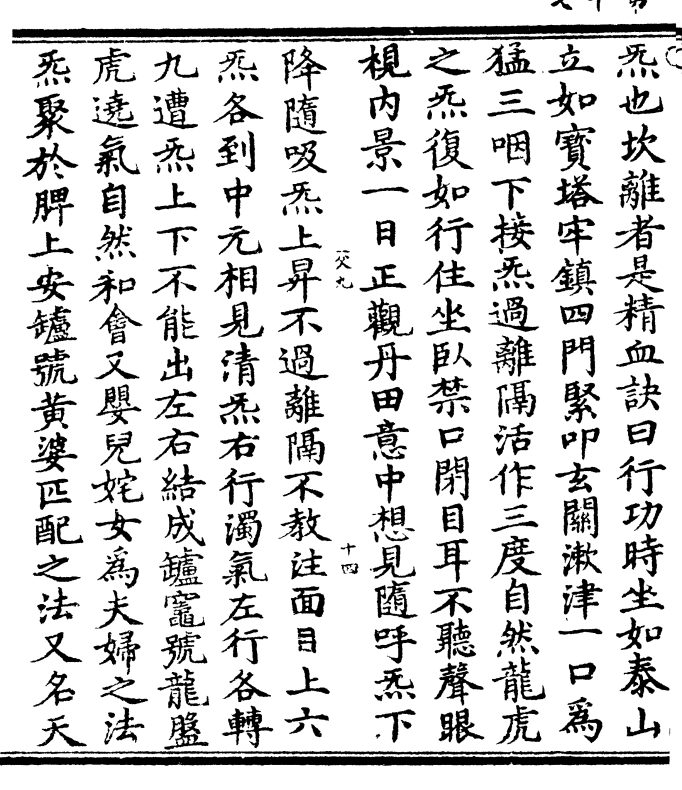 炁也坎離者是精血訣曰行功時坐如泰山
立如寶塔牢鎮四門緊叩玄關漱津一口為
猛三咽下接炁過離隔活作三度自然龍虎
之炁復如行住坐臥禁口閉目耳不聽聲眼
梘內景一日正觀丹田意中想見隨呼炁下
父九
十四
降隨吸炁上昇不過離隔不教注面目上六
炁各到中元相見清炁右行濁氣左行各轉
九遭炁上下不能出左右結成鑪竈號龍盤
虎遶氣自然和會又嬰兒姹女為夫婦之法
炁聚於脾上安鑪號黃婆匹配之法又名天